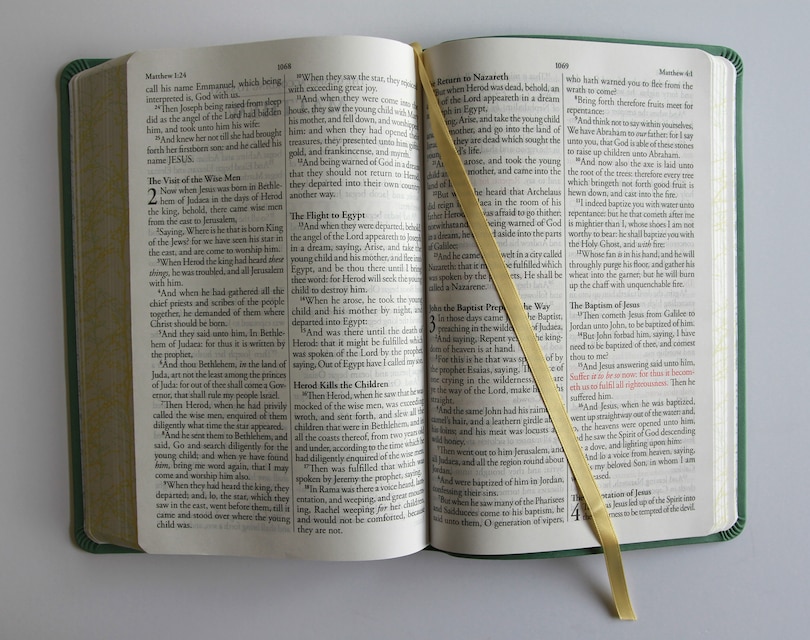 Matthew 1:24
1068
call his name Emmanuel, which being
interpreted is, God with us.
24 Then Joseph being raised from sleep
did as the angel of the Lord had bidden
him, and took unto him his wife:
25 And knew her not till she had brought
forth her firstborn son: and he called his
name JESUS.
The Visit of the Wise Men
2 Now when Jesus was born in Bethle-
hem of Judaea in the days of Herod
the king, behold, there came wise men
from the east to Jerusalem,
2 Saying, Where is he that is born King
of the Jews? for we have seen his star in
the east, and are come to worship him.
3 When Herod the king had heard these
things, he was troubled, and all Jerusalem
with him.
4 And when he had gathered all the
chief priests and scribes of the people
together, he demanded of them where
Christ should be born.
5 And they said unto him, In Bethle-
hem of Judaea: for thus it is written by
the prophet,
6 And thou Bethlehem, in the land of
Juda, art not the least among the princes
of Juda: for out of thee shall come a Gov-
ernor, that shall rule my people Israel.
7 Then Herod, when he had privily
called the wise men, enquired of them
diligently what time the star appeared.
8 And he sent them to Bethlehem, and
said, Go and search diligently for the
young child; and when ye have found
him, bring me word again, that I may
come and worship him also.
9 When they had heard the king, they
departed; and, lo, the star, which they
saw in the east, went before them, till it
came and stood over where the young
child was.
10 When they saw the star, they rejoiced
with exceeding great joy.
11 And when they were come into the
house, they saw the young child with Mary
his mother, and fell down, and worshipped
him: and when they had opened their
treasures, they presented unto him gifts;
gold, and frankincense, and myrrh.
12 And being warned of God in a dream
that they should not return to Herod,
they departed into their own country
another way.
The Flight to Egypt
13 And when they were departed, behold,
the angel of the Lord appeareth to Joseph
in a dream, saying, Arise, and take the
young child and his mother, and flee into
Egypt, and be thou there until I bring
thee word: for Herod will seek the young
child to destroy him.
14 When he arose, he took the young
child and his mother by night, and
departed into Egypt:
15 And was there until the death of
Herod: that it might be fulfilled which
was spoken of the Lord by the prophet,
saying, Out of Egypt have I called my son.
Herod Kills the Children
16 Then Herod, when he saw that he was
mocked of the wise men, was exceeding
wroth, and sent forth, and slew all the
children that were in Bethlehem, and in
all the coasts thereof, from two years old
and under, according to the time which he
had diligently enquired of the wise men.
17 Then was fulfilled that which was
spoken by Jeremy the prophet, saying,
18 In Rama was there a voice heard, lam-
entation, and weeping, and great mourn-
ing, Rachel weeping for her children,
and would not be comforted, because
they are not.
1069
Matthew 4:1
Return to Nazareth
But when Herod was dead, behold, an
of the Lord appeareth in a dream
in Egypt,
Arise, and take the young child
mother, and go into the land of
they are dead which sought the
life.
arose, and took the young
mother, and came into the
land of
heard that Archelaus
did reign Judaea in the room of his
father Herod, was afraid to go thither:
notwithstanding, being warned of God
in a dream, he aside into the parts
of Galilee:
23 And he came dwelt in a city called
Nazareth: that it be fulfilled which
was spoken by the prophets, He shall be
called a Nazarene.
John the Baptist Prepares the Way
3 In those days came the Baptist,
preaching in the wilderness of Judaea,
2 And saying, Repent ye: the king-
dom of heaven is at hand.
3 For this is he that was spoken of by
the prophet Esaias, saying, The voice of
one crying in the wilderness, Prepare
ye the way of the Lord, make his paths
straight.
4 And the same John had his raiment
camel's hair, and a leathern girdle about
his loins; and his meat was locusts and
wild honey.
Then went out to him Jerusalem, and
all Judaea, and all the region round about
Jordan,
6 And were baptized of him in Jordan,
confessing their sins.
7 But when he saw many of the Pharisees
and Sadducees come to his baptism, he
said unto them, O generation of vipers,
who hath warned you to flee from the
wrath to come?
8 Bring forth therefore fruits meet for
repentance:
9 And think not to say within yourselves,
We have Abraham to our father: for I say
unto you, that God is able of these stones
to raise up children unto Abraham.
10 And now also the axe is laid unto
the root of the trees: therefore every tree
which bringeth not forth good fruit is
hewn down, and cast into the fire.
11 I indeed baptize you with water unto
repentance: but he that cometh after me
is mightier than I, whose shoes I am not
worthy to bear: he shall baptize you with
the Holy Ghost, and with fire:
12 Whose fan is in his hand, and he will
throughly purge his floor, and gather his
wheat into the garner; but he will burn
up the chaff with unquenchable fire.
The Baptism of Jesus
13 Then cometh Jesus from Galilee to
Jordan unto John, to be baptized of him.
14 But John forbad him, saying, I have
need to be baptized of thee, and comest
thou to me?
15 And Jesus answering said unto him,
Suffer it to be so now: for thus it becom-
eth us to fulfil all righteousness. Then he
suffered him.
16 And Jesus, when he was baptized,
went up straightway out of the water: and,
lo, the heavens were opened unto him,
and he saw the Spirit of God descending
like a dove, and lighting upon him:
17 And lo a voice from heaven, saying,
This is my beloved Son, in whom I am
well pleased.
The Temptation of Jesus
4 Then was Jesus led up of the Spirit into
the wilderness to be tempted of the devil.